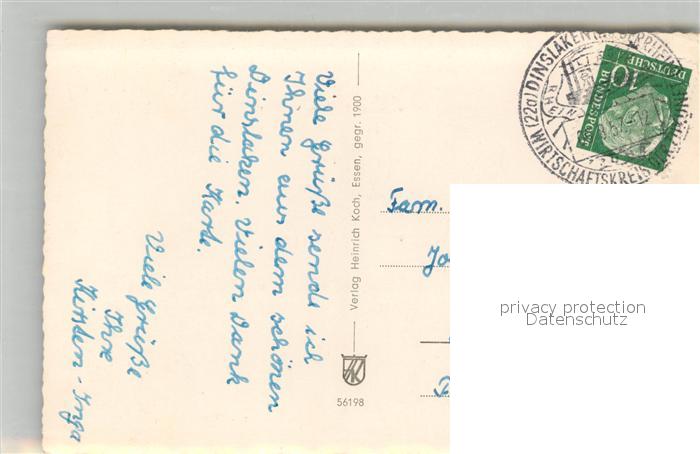 Viele Grüße sende ich
Ihnen aus dem schönen
Dinslaken. Vielen Dank
für die Karte.
Viele Grüße
Ihre
Verlag Heinrich Koch, Essen, gegr. 1900
56198
Fam.
(22a) DINSLAKEN
RHEIN
WIRTSCHAFTSKREIS
DEUTSCHE
BUNDESPOST
10
privacy protection
Datenschutz